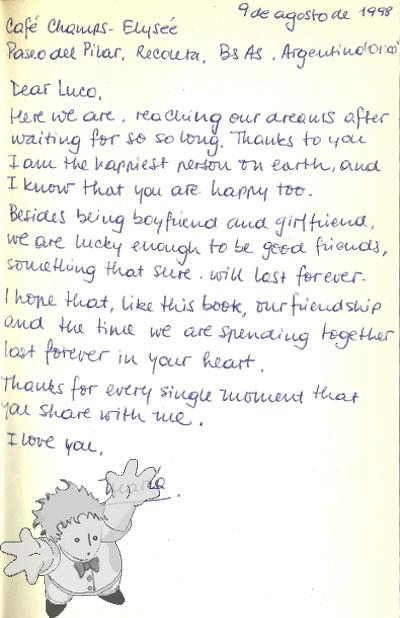 9 de agosto de 1998
Café Champs-Elysée
Paseo del Pilar, Recoleta, Bs As, Argentina (01:00)
Dear Luca,
Here we are, reaching our dreams after
waiting for so so long. Thanks to you
I am the happiest person on earth, and
I know that you are happy too.
Besides being boyfriend and girlfriend,
we are lucky enough to be good friends,
something that sure, will last forever.
I hope that, like this book, our friendship
and the time we are spending together
last forever in your heart.
Thanks for every single moment that
you share with me.
I love you,